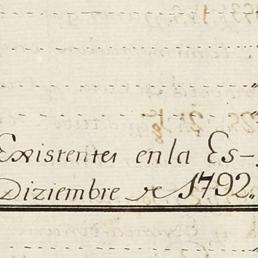 Existentes en la Es-
Diziembre de 1792.